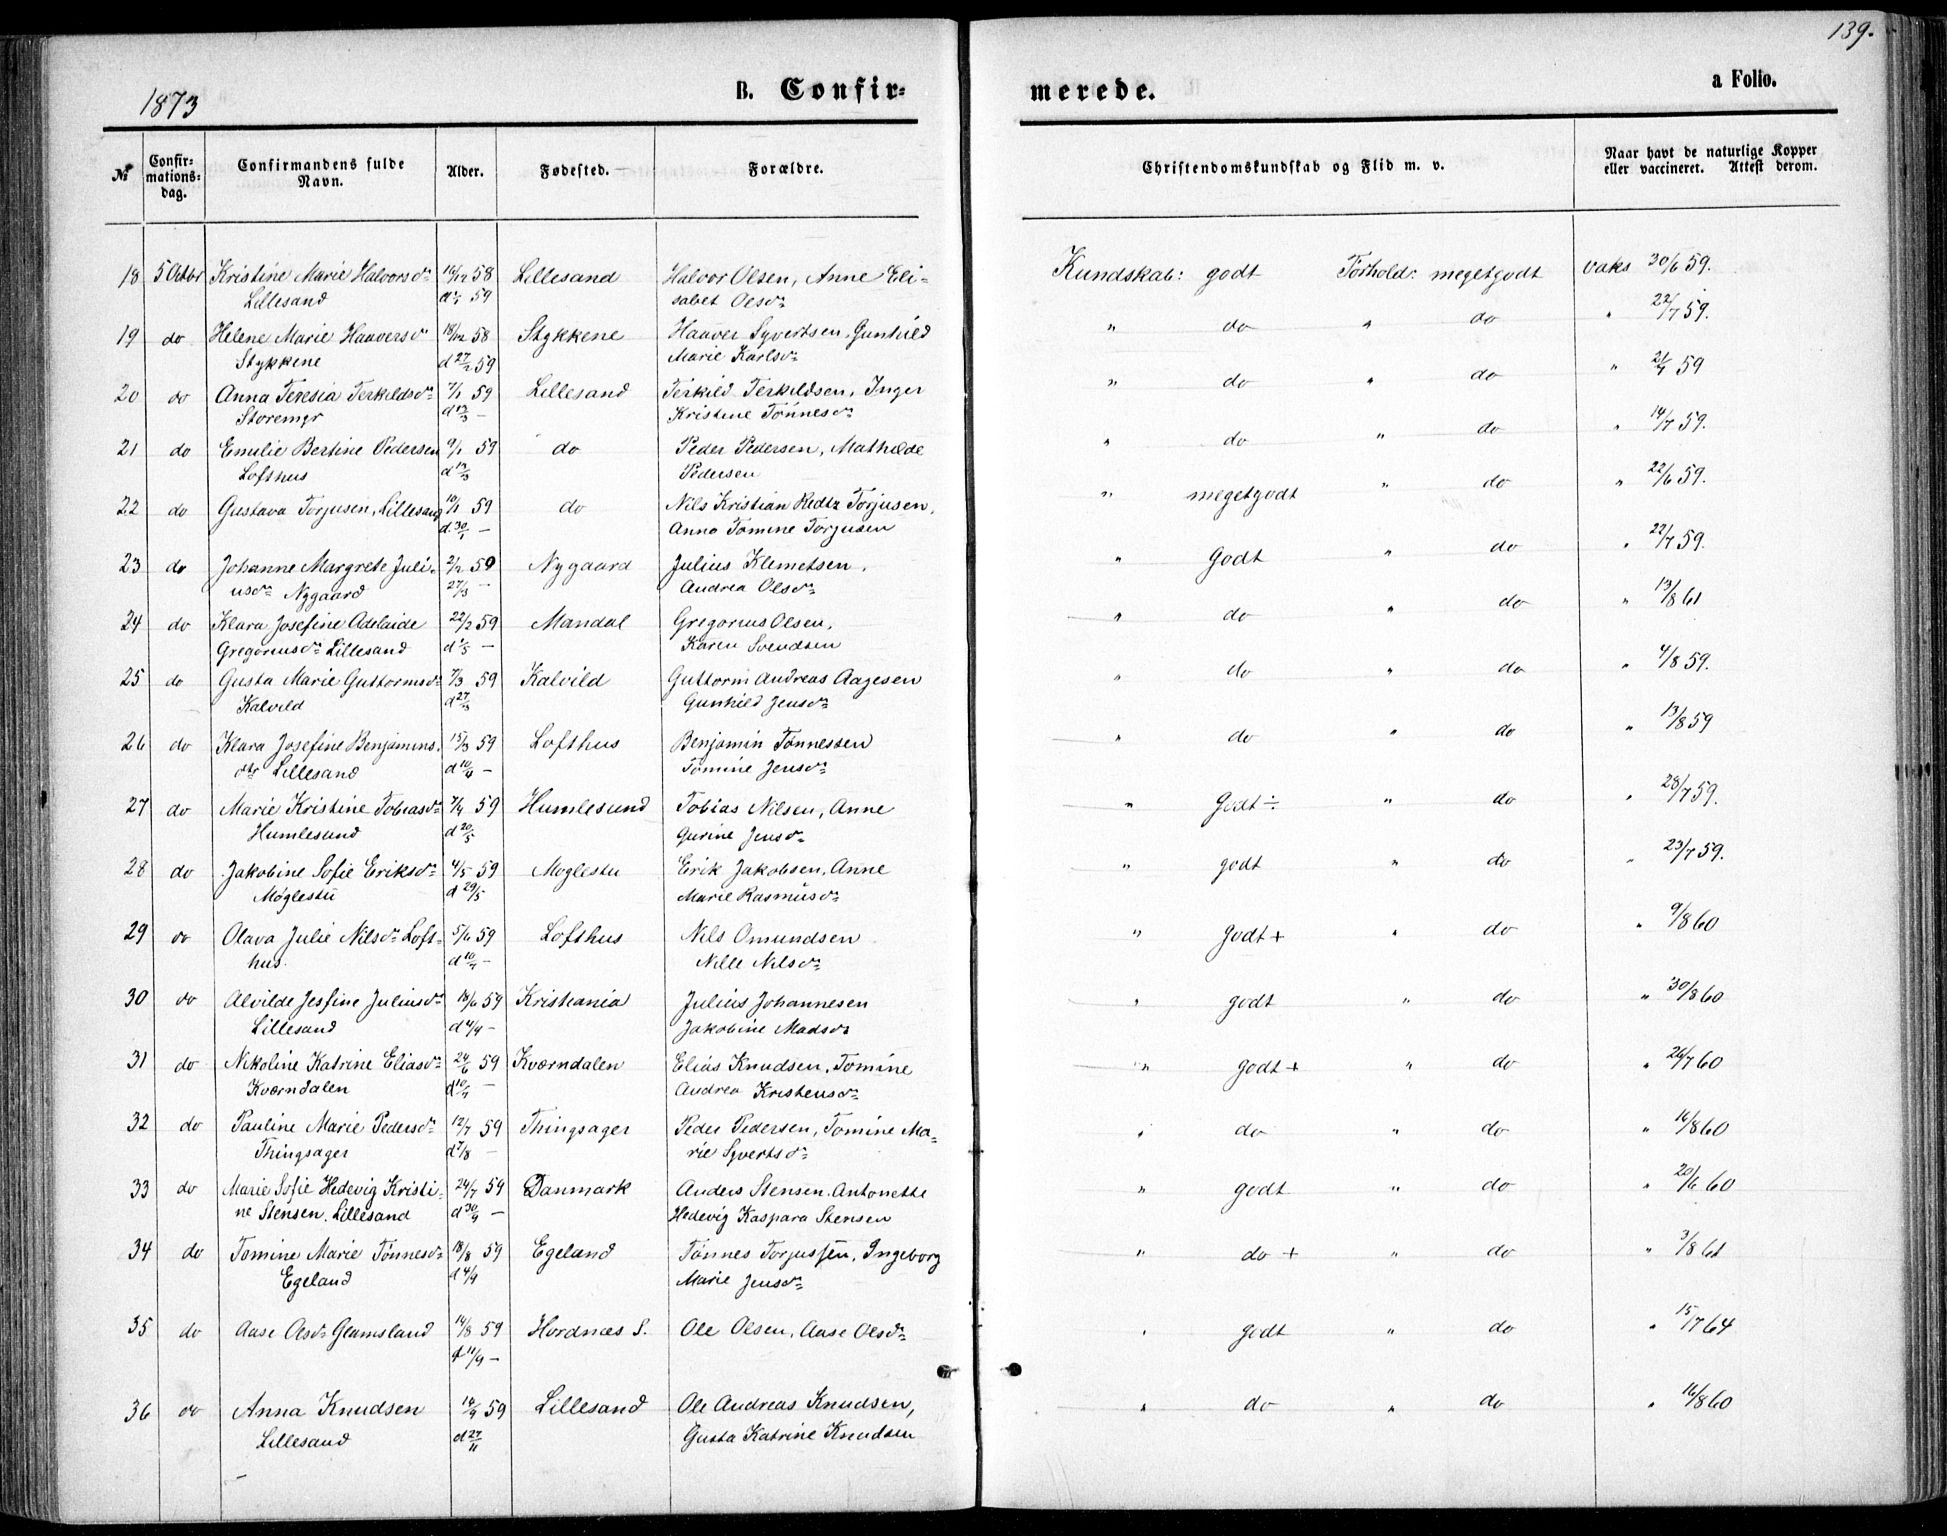 139.
1873
B. Confir-
merede.
a Folio.
№
Confir-
mations-
dag.
Confirmandens fulde
Navn.
Alder.
Fødested.
Forældre.
Christendomskundskab og Flid m. v.
Naar havt de naturlige Kopper
eller vaccineret. Attest derom.
18 5 Octbr Kristine Marie Halvorsdr 58 Lillesand Halvor Olsen, Anne Eli- Kundskab: godt Forhold: megetgodt vaks 30/6 59.
Lillesand 59 sabet Olsdr
19 do Helene Marie Haaversdr 18/12 58 Stykkene Haaver Syvertsen, Gunhild " do " do " 22/7 59.
Stykkene d 27/2 59 Marie Karlsdr
20 do Anna Teresia Terkildsdr 7/1 59 Lillesand Terkild Terkildsen, Inger " do " do " 59
Storemyr d 13/3 — Kristine Tönnesdr
21 do Emilie Bertine Pedersen 9/1 59 do Peder Pedersen, Mathilde " do " do " 14/7 59.
Lofthus d 13/3 Pedersen
22 do Gustava Torjusen, Lillesand 10/1 59 do Nils Kristian Redtz Torjusen, " megetgodt " do " 22/6 59.
d. 30/1 — Anna Tomine Torjusen
23 do Johanne Margrete Juli- 2/2 59 Nygaard Julius Klemetsen, " Godt " do " 22/7 59.
usdr Nygaard 27/3 — Andrea Olsdr
24 do Klara Josefine Adelaide 22/2 59 Mandal Gregorius Olsen, " do " do " 13/8 61
Gregoriusdr Lillesand d 1/5 — Karen Svendsen
25 do Gusta Marie Guttormsdr 7/3 59 Kalvild Guttorm Andreas Aagesen " do " do " 4/8 59.
Kalvild d 27/3 Gunhild Jensdr
26 do Klara Josefine Benjamins. 15/3 59 Lofthus Benjamin Tönnessen " do " do " 13/8 59
dtr Lillesand d 10/4 — Tomine Jensdr
27 do Marie Kristine Tobiasdr 7/4 59 Humlesund Tobias Nilsen, Anne " Godt ÷ " do " 28/7 59.
Humlesund d 20/5 Gurine Jensdr
28 do Jakobine Sofie Eriksdr 4/5 59 Moglestu Erik Jakobsen, Anne " godt " do " 23/7 59.
Møglestu d 29/5 Marie Rasmusdr
29 do Olava Julie Nilsdr Loft- 5/6 59 Lofthus Nils Omundsen " godt + " do " 9/8 60
hus. d 10/7 — Nille Nilsdr
30 do Alvilde Jesfine Juliusdr 18/6 59 Kristiania Julius Johannesen " godt " do " 30/8 60
Lillesand d 4/9 — Jakobine Madsdr
31 do Nikoline Katrine Eliasdr 24/6 59 Kværndalen Elias Knudsen, Tomine " godt + " do " 26/7 60
Kværndalen d 10/7 — Andrea Kristensdr
32 do Pauline Marie Pedersdr 12/7 59 Thingsager Peder Pedersen, Tomine Ma- " do " do " 16/8 60
Thingsager d 7/8 — rie Syvertsdr
33 do Marie Sofie Hedevig Kristi- 24/7 59 Danmark Anders Stensen. Antonette " godt " do " 20/6 60
ne Stensen. Lillesand d 30/9 — Hedevig Kaspara Stensen
34 do Tomine Marie Tønnesdr 18/8 59 Egeland Tønnes Torjussen, Ingeborg " do + " do " 3/8 61
Egeland d 4/9 Marie Jensdr
35 do Aase Olsdr Glamsland 14/8 59 Hordnæs S. Ole Olsen, Aase Olsdr " godt " do " 15/7 64
d 11/9 —
36 do Anna Knudsen 14/9 59 Lillesand Ole Andreas Knudsen, " do " do " 16/8 60
Lillesand d 27/11 Gusta Katrine Knudsen